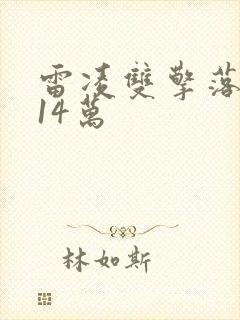 雷凌雙擎落
14萬
林如斯